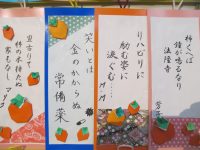 柿くへば
鐘が鳴るなり
法隆寺
リハビリに
励む姿に
涙ぐむ…
笑いとは
金のかからぬ
常備菜
里古りて
柿の木持たぬ
家もなし